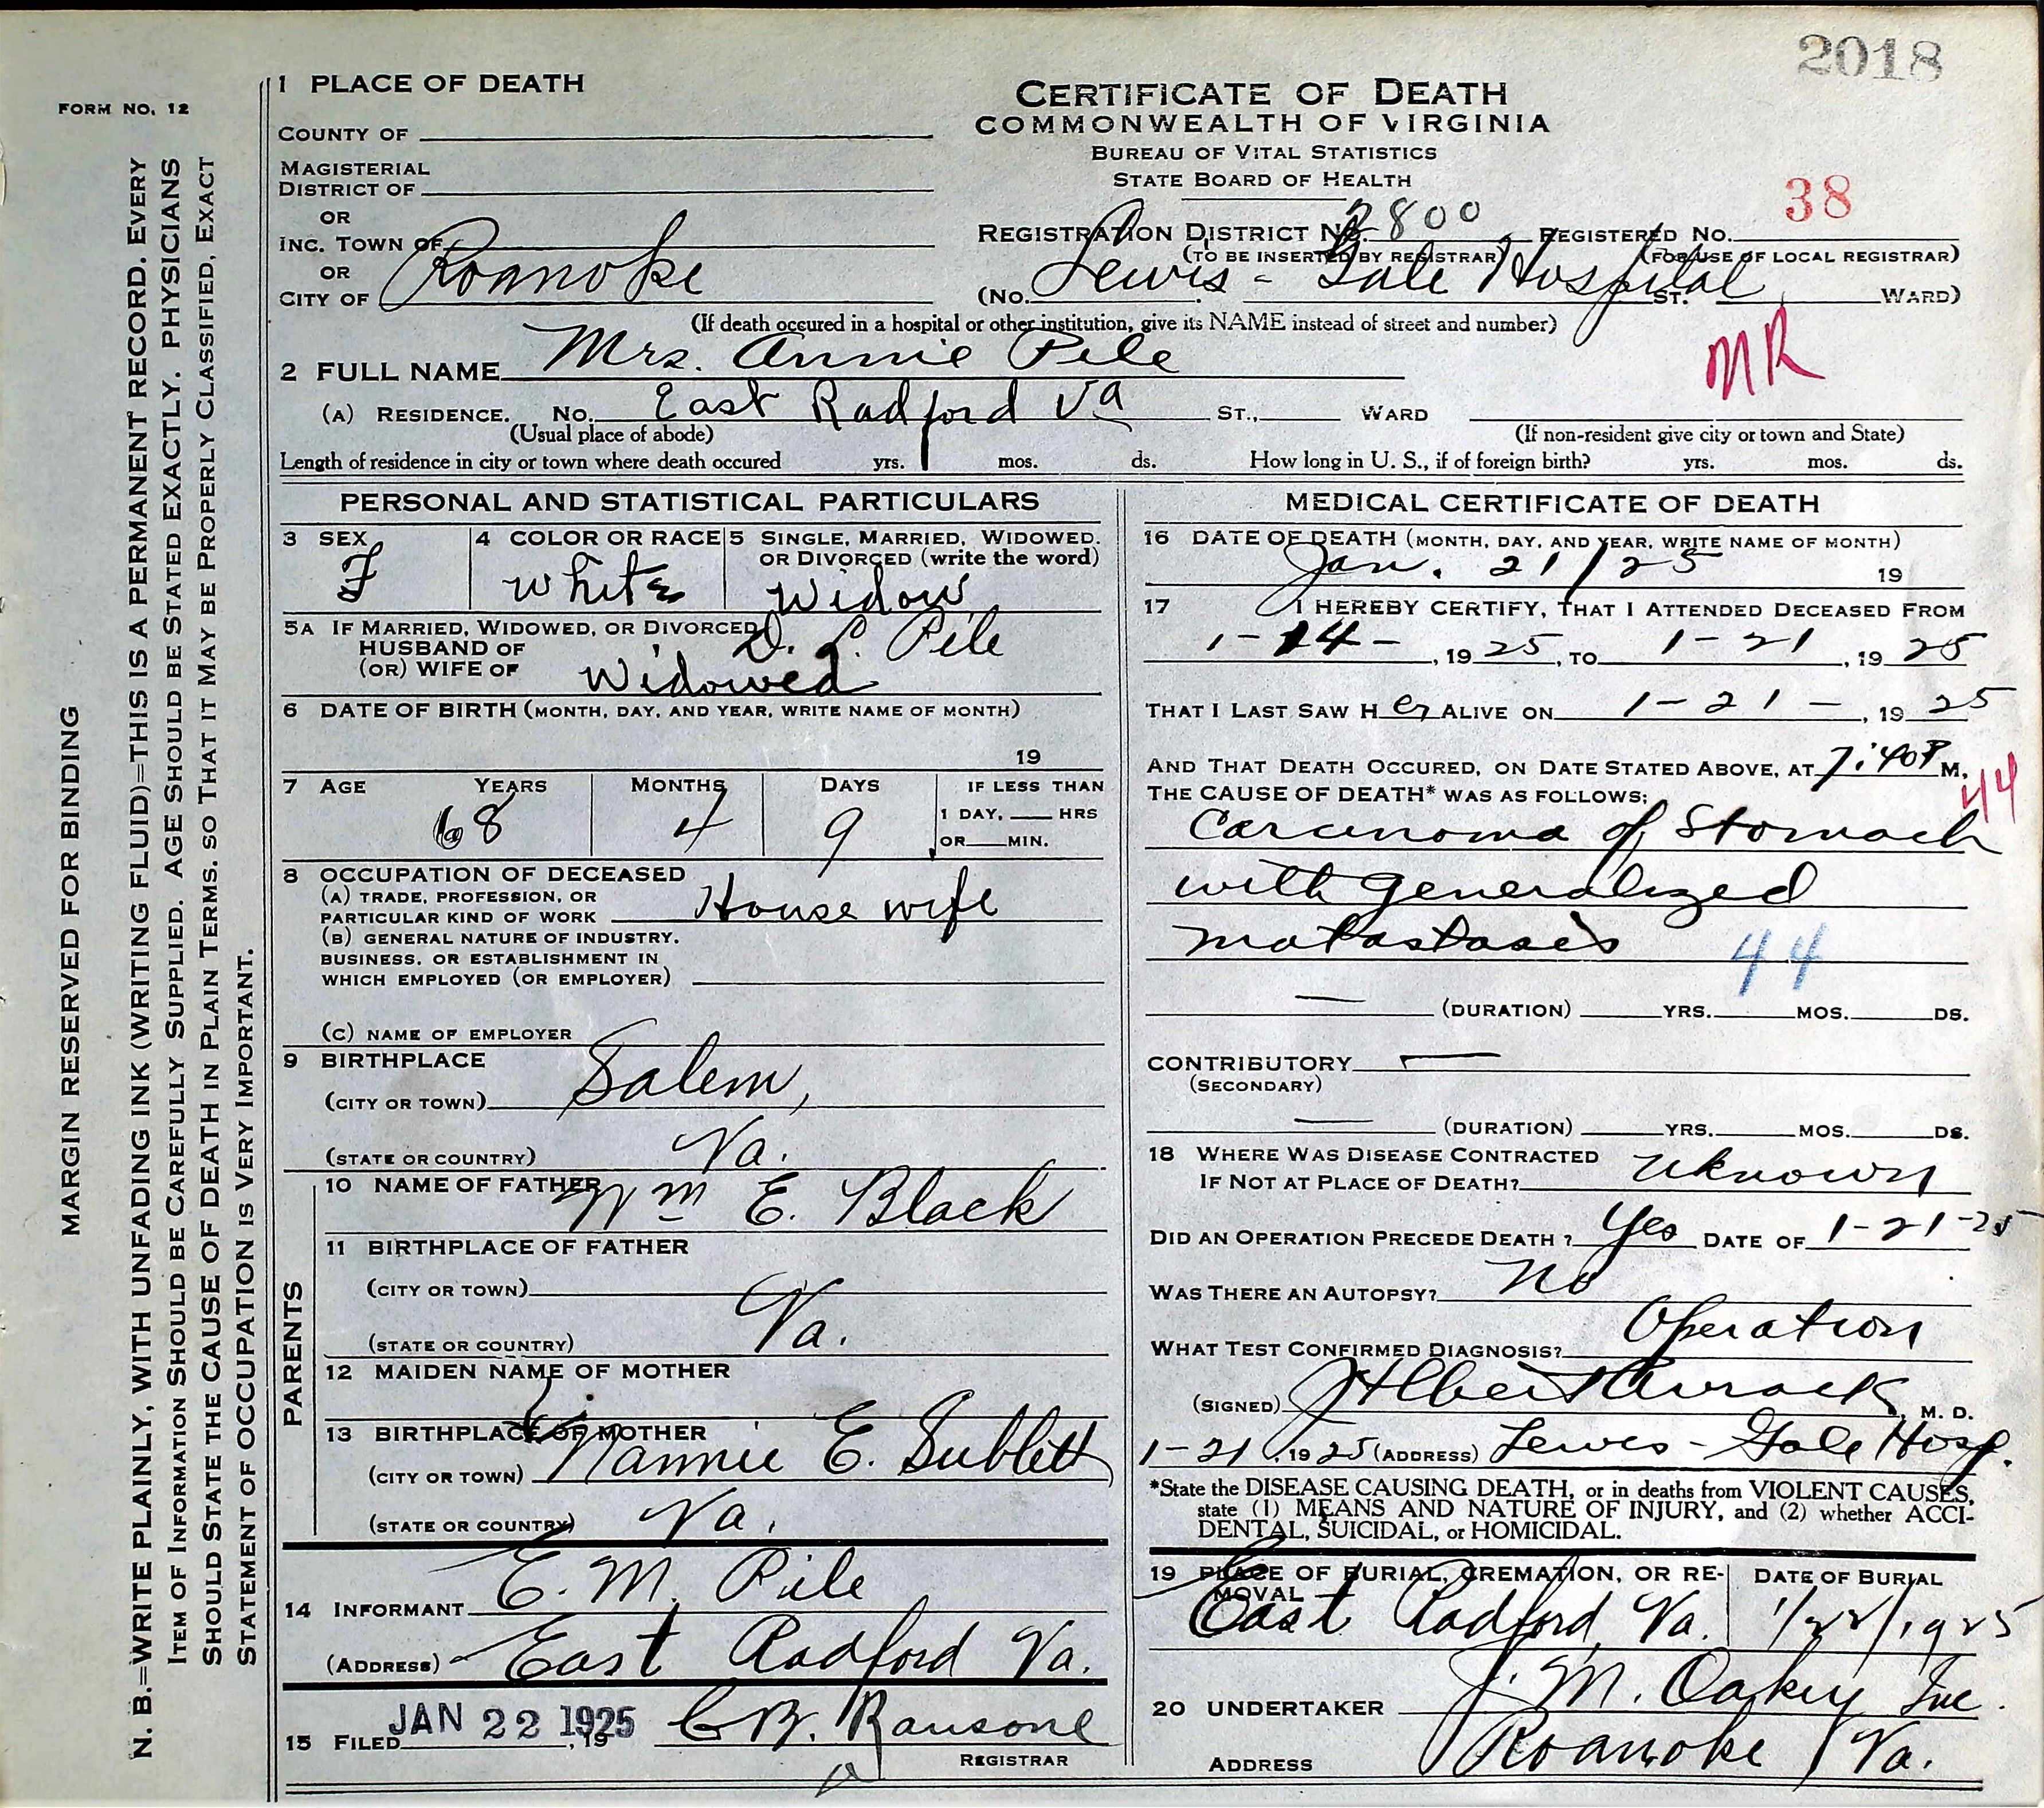 2018
FORM NO. 12
MARGIN RESERVED FOR BINDING
N. B.=WRITE PLAINLY, WITH UNFADING INK (WRITING FLUID)=THIS IS A PERMANENT RECORD. EVERY
ITEM OF INFORMATION SHOULD BE CAREFULLY SUPPLIED. AGE SHOULD BE STATED EXACTLY. PHYSICIANS
SHOULD STATE THE CAUSE OF DEATH IN PLAIN TERMS. SO THAT IT MAY BE PROPERLY CLASSIFIED, EXACT
STATEMENT OF OCCUPATION IS VERY IMPORTANT.
1 PLACE OF DEATH
COUNTY OF
MAGISTERIAL
DISTRICT OF
OR
INC. TOWN OF
OR
CITY OF Roanoke
CERTIFICATE OF DEATH
COMMONWEALTH OF VIRGINIA
BUREAU OF VITAL STATISTICS
STATE BOARD OF HEALTH
38
REGISTRATION DISTRICT NO. 2800 REGISTERED NO.
(TO BE INSERTED BY REGISTRAR) (FOR USE OF LOCAL REGISTRAR)
(NO. Lewis - Gale Hospital ST. WARD)
(If death occured in a hospital or other institution, give its NAME instead of street and number)
2 FULL NAME Mrs. Annie Pile
MR
(A) RESIDENCE. NO. East Radford Va ST., WARD
(Usual place of abode) (If non-resident give city or town and State)
Length of residence in city or town where death occured yrs. mos. ds. How long in U. S., if of foreign birth? yrs. mos. ds.
PERSONAL AND STATISTICAL PARTICULARS
3 SEX 4 COLOR OR RACE 5 SINGLE, MARRIED, WIDOWED.
OR DIVORCED (write the word)
F White Widow
5A IF MARRIED, WIDOWED, OR DIVORCED
HUSBAND OF D. L. Pile
(OR) WIFE OF Widowed
6 DATE OF BIRTH (MONTH, DAY, AND YEAR, WRITE NAME OF MONTH)
19
7 AGE YEARS MONTHS DAYS IF LESS THAN
1 DAY, HRS
OR MIN.
68 4 9
8 OCCUPATION OF DECEASED
(A) TRADE, PROFESSION, OR
PARTICULAR KIND OF WORK House wife
(B) GENERAL NATURE OF INDUSTRY.
BUSINESS. OR ESTABLISHMENT IN
WHICH EMPLOYED (OR EMPLOYER)
(C) NAME OF EMPLOYER
9 BIRTHPLACE
(CITY OR TOWN) Salem,
(STATE OR COUNTRY) Va.
PARENTS
10 NAME OF FATHER Wm E. Black
11 BIRTHPLACE OF FATHER
(CITY OR TOWN)
(STATE OR COUNTRY) Va.
12 MAIDEN NAME OF MOTHER
13 BIRTHPLACE OF MOTHER
(CITY OR TOWN) Nannie E. Sublett
(STATE OR COUNTRY) Va.
14 INFORMANT E. M. Pile
(ADDRESS) East Radford Va.
15 FILED JAN 22 1925, 19 C B. Ransone
REGISTRAR
MEDICAL CERTIFICATE OF DEATH
16 DATE OF DEATH (MONTH, DAY, AND YEAR, WRITE NAME OF MONTH)
Jan. 21/25 19
17 I HEREBY CERTIFY, THAT I ATTENDED DECEASED FROM
1-14-, 19 25, TO 1-21, 19 25
THAT I LAST SAW H er ALIVE ON 1-21-, 19 25
AND THAT DEATH OCCURED, ON DATE STATED ABOVE, AT 7:40P M.
44
THE CAUSE OF DEATH* WAS AS FOLLOWS:
Carcinoma of Stomach
with generalized
matastasis
44
(DURATION) YRS. MOS. DS.
CONTRIBUTORY
(SECONDARY)
(DURATION) YRS. MOS. DS.
18 WHERE WAS DISEASE CONTRACTED
IF NOT AT PLACE OF DEATH? Uknown
DID AN OPERATION PRECEDE DEATH? Yes DATE OF 1-21-25
WAS THERE AN AUTOPSY? No
WHAT TEST CONFIRMED DIAGNOSIS? Operation
(SIGNED) M. D.
1-21, 1925 (ADDRESS) Lewis - Gale Hosp.
*State the DISEASE CAUSING DEATH, or in deaths from VIOLENT CAUSES,
state (1) MEANS AND NATURE OF INJURY, and (2) whether ACCI-
DENTAL, SUICIDAL, or HOMICIDAL.
19 PLACE OF BURIAL, CREMATION, OR RE- DATE OF BURIAL
MOVAL
East Radford, Va. 1/22/1925
20 UNDERTAKER J. M. Oakey Inc.
ADDRESS Roanoke Va.